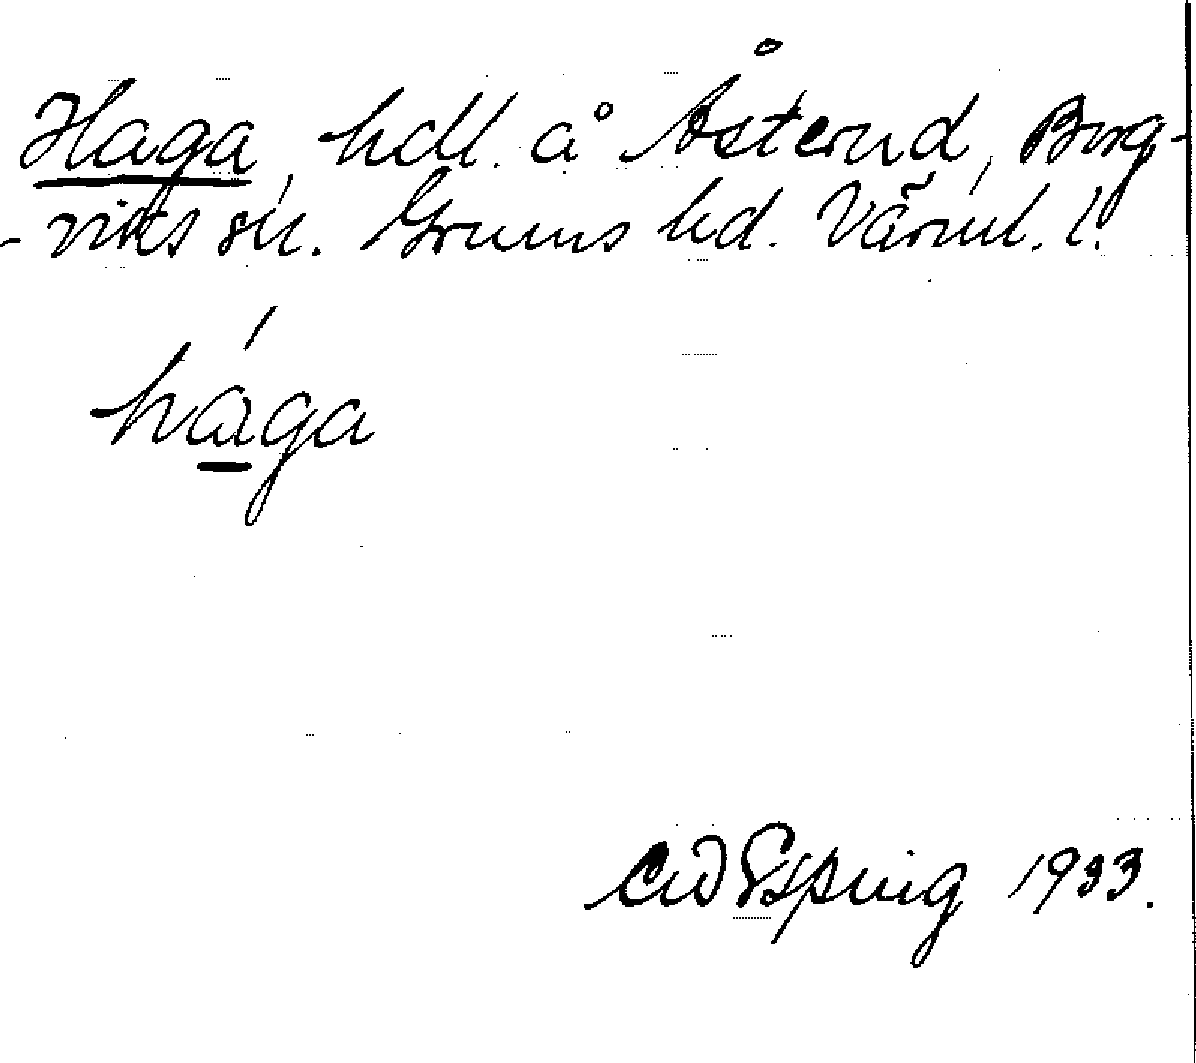 Haga, hdl. å Åsterud, Borg-
-viks sn. Grums hd. Värml. l.
hága
C W Esping 1933.